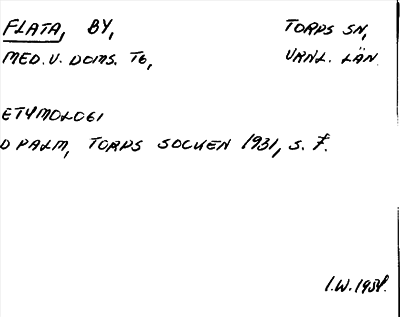 FLATA, BY, TORPS SN,
MED. V. DOMS. TG, VRNL. LÄN.
ETYMOLOGI
D PALM, TORPS SOCKEN 1931, S. 7.
I.W. 1938.